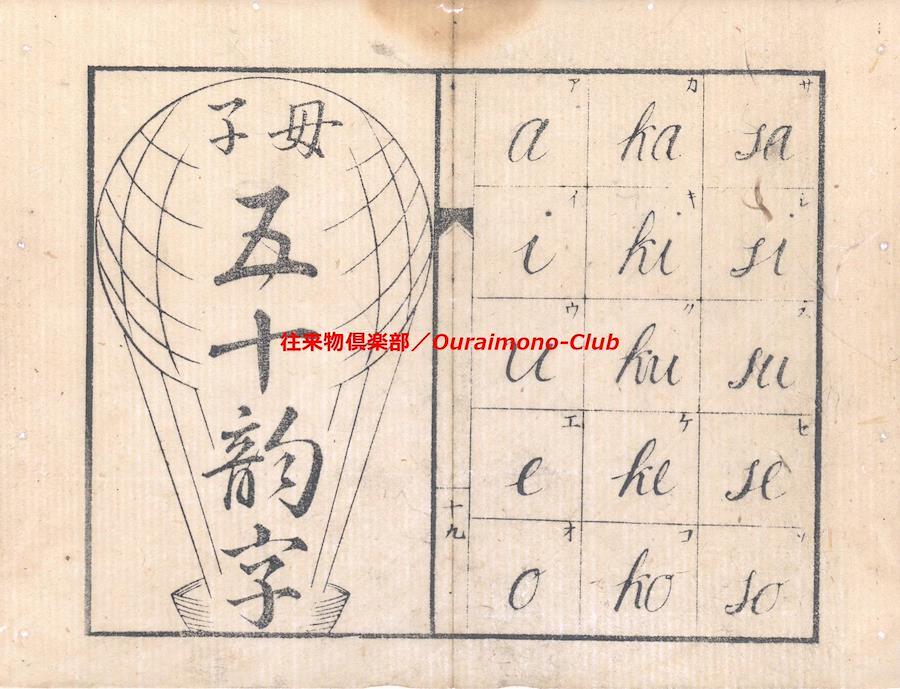 母子
五十韵字
往来物倶楽部／Ouraimono-Club
十九
ア カ サ
a ka sa
イ キ シ
i ki si
ウ ク ス
u ku su
エ ケ セ
e ke se
オ コ ソ
o ko so